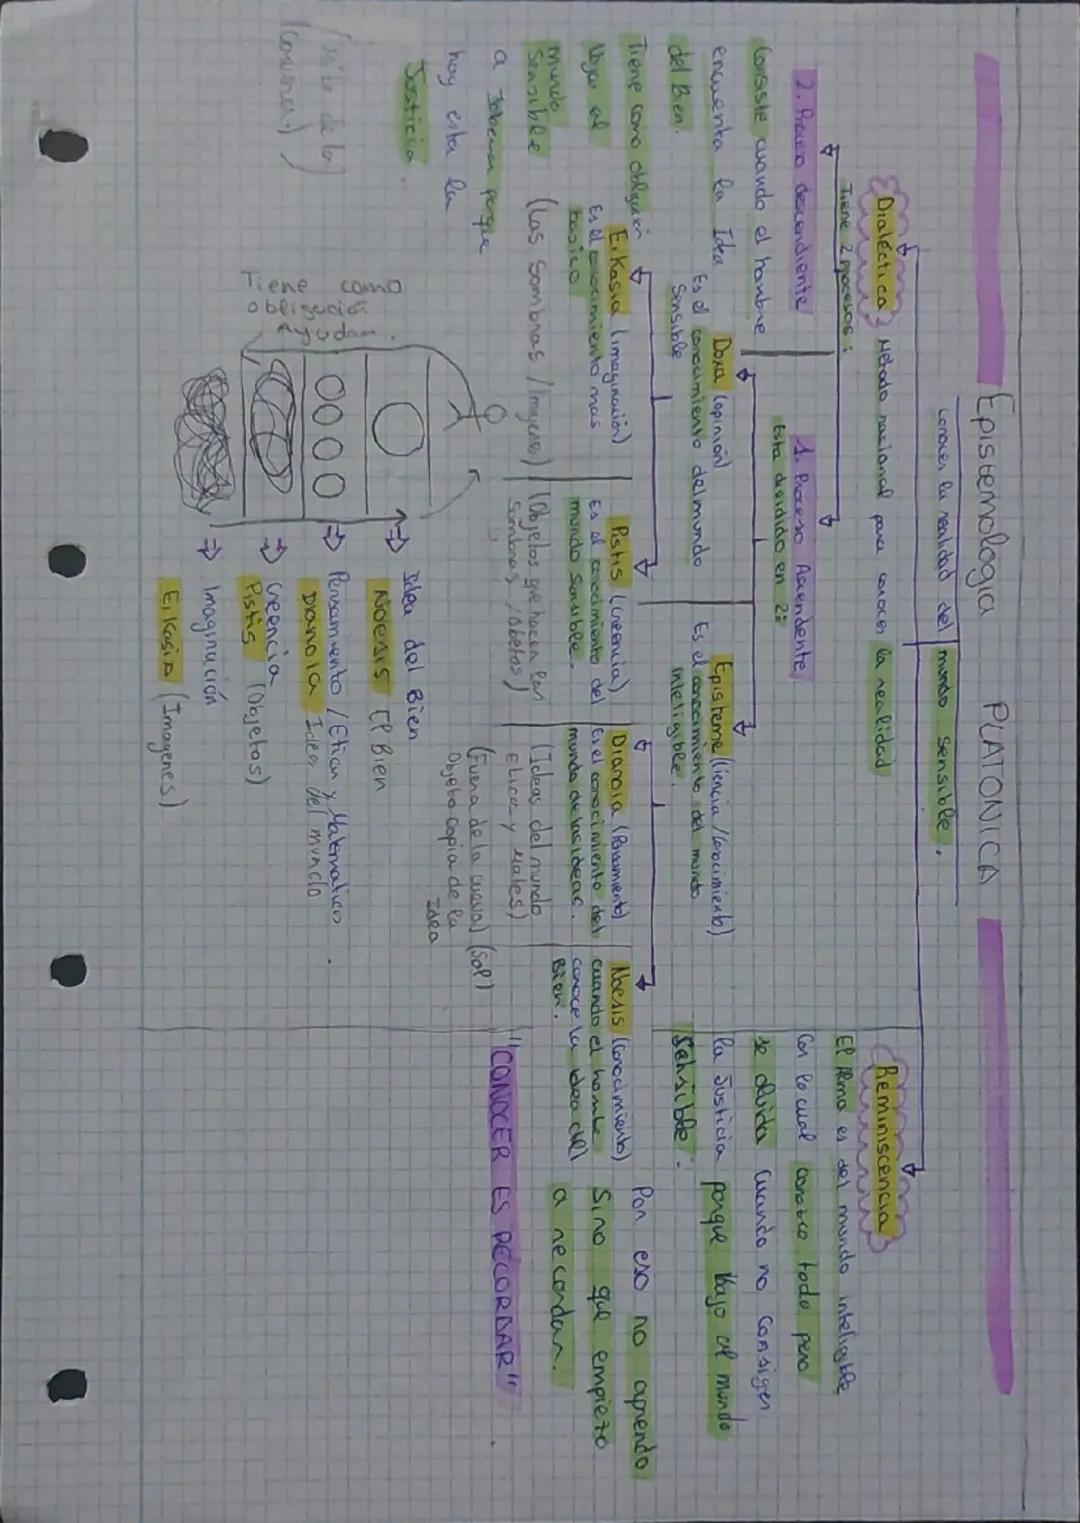 Epistemologia PLATONICA
conocer la realidad del mundo sensible.
Dialéctica
Método racional para conocer la realidad
Tiene 2 procesos:
2. Proceso descendiente
Consiste cuando el hombre
encuentra la Idea
del Bien.
Tiene como obligación
bajar al
mundo
sensible
a gobernar porque
hay esta la
Justicia.
(Mito de la
Caverna.)
1. Proceso Ascendente
Esta dividido en 2:
Doxa (opinión)
Es el conocimiento del mundo
Sensible
Episteme (Ciencia/Conocimiento)
Es el conocimiento del mundo
inteligible.
Eikasia (imaginación)
Es el conocimiento mas
basico
(Las sombras / Imagenes)
Pistis (creencia)
Es el conocimiento del
mundo sensible.
(Objetos que hacen las
sombras / Objetos)
Dianoia (Pensamiento)
Es el conocimiento del
mundo de las ideas.
(Ideas del mundo
Etica y Mates)
(Fuera de la cueva)
Objeto copia de la
Idea
Noesis (Conocimiento)
cuando el hombre
conoce la idea del
Bien.
(Sol)
Reminiscencia
El Alma es del mundo inteligible
Con lo cual conozco todo pero
se olvida cuando no consigen
la Justicia porque bajo al mundo
Sensible.
Por eso no aprendo
Sino que empiezo
a recordar.
"CONOCER ES RECORDAR"
Tiene como
obligación
ayudar.
Idea del Bien
Noesis El Bien
Pensamiento / Etica y Matematicas
Dianoia Idea del mundo
Creencia
Pistis (Objetos)
Imaginación
Eikasia (Imagenes)